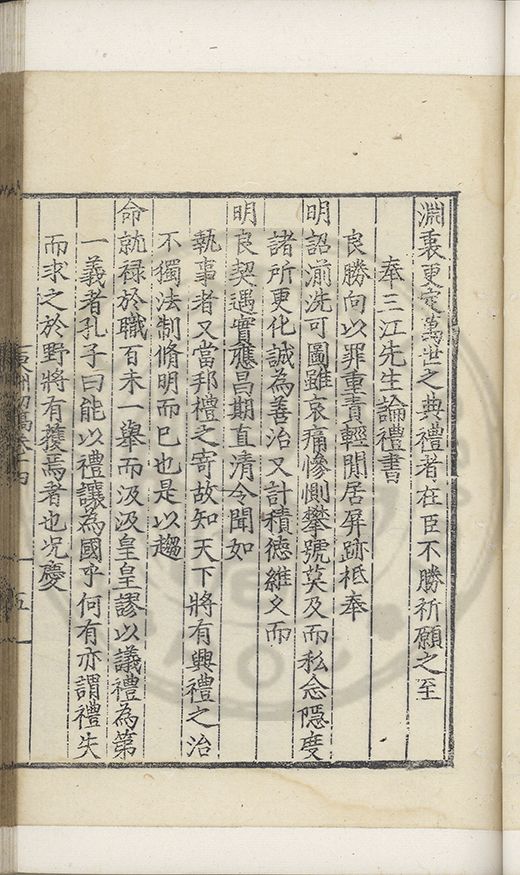 淵衷更定萬世之典禮者在臣不勝祈願之至
奉三江先生論禮書
良勝向以罪重責輕閒居屏跡柢奉
明詔湔洗可圖雖哀痛慘惻攀號莫及而私念隱度
諸所更化誠為善治又計積德維乂而
明良契遇實應昌期直清令聞如
執事者又當邦禮之寄故知天下將有興禮之治
不獨法制脩明而巳也是以趨
命就祿於職百未一舉而汲汲皇皇謬以議禮為第
一義者孔子曰能以禮讓為國乎何有亦謂禮失
而求之於野將有獲焉者也况慶
東洲初稿卷十四
五